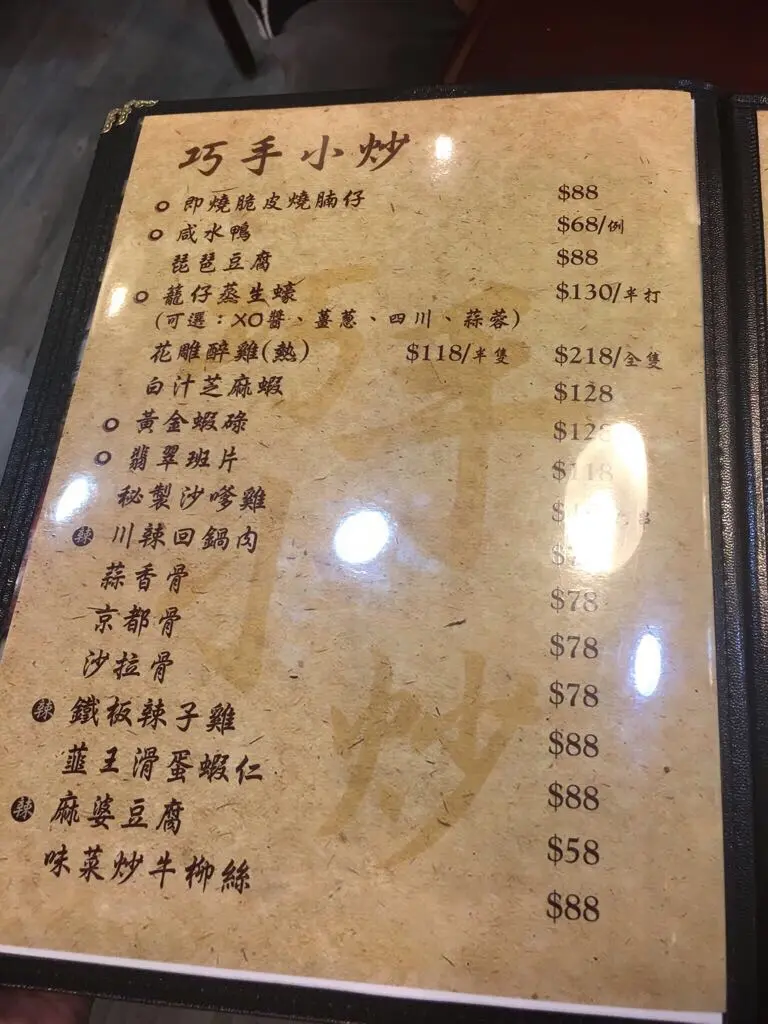 巧手小炒
即燒脆皮燒腩仔 $88
咸水鴨 $68/例
琵琶豆腐 $88
籠仔蒸生蠔 $130/半打
(可選：XO醬、薑蔥、四川、蒜蓉)
花雕醉雞(熱) $118/半隻 $218/全隻
白汁芝麻蝦 $128
黃金蝦碌 $128
翡翠班片 $118
秘製沙嗲雞
辣 川辣回鍋肉
蒜香骨 $78
京都骨 $78
沙拉骨 $78
辣 鐵板辣子雞 $88
韮王滑蛋蝦仁 $88
辣 麻婆豆腐 $58
味菜炒牛柳絲 $88